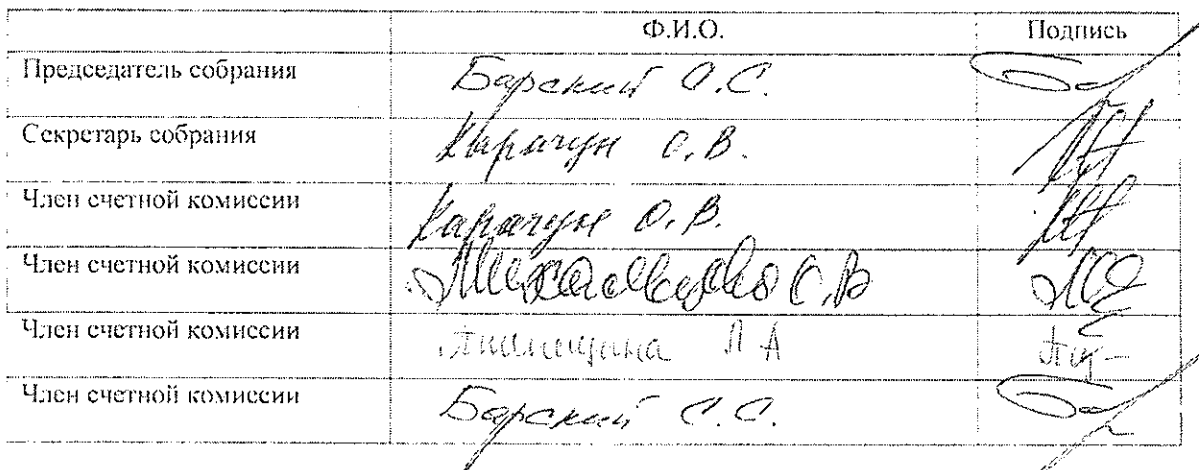 Ф.И.О. Подпись
Председатель собрания Барский О.С.
Секретарь собрания Карачун О.В.
Член счетной комиссии Карачун О.В.
Член счетной комиссии С.В
Член счетной комиссии Л А
Член счетной комиссии Барский О.С.